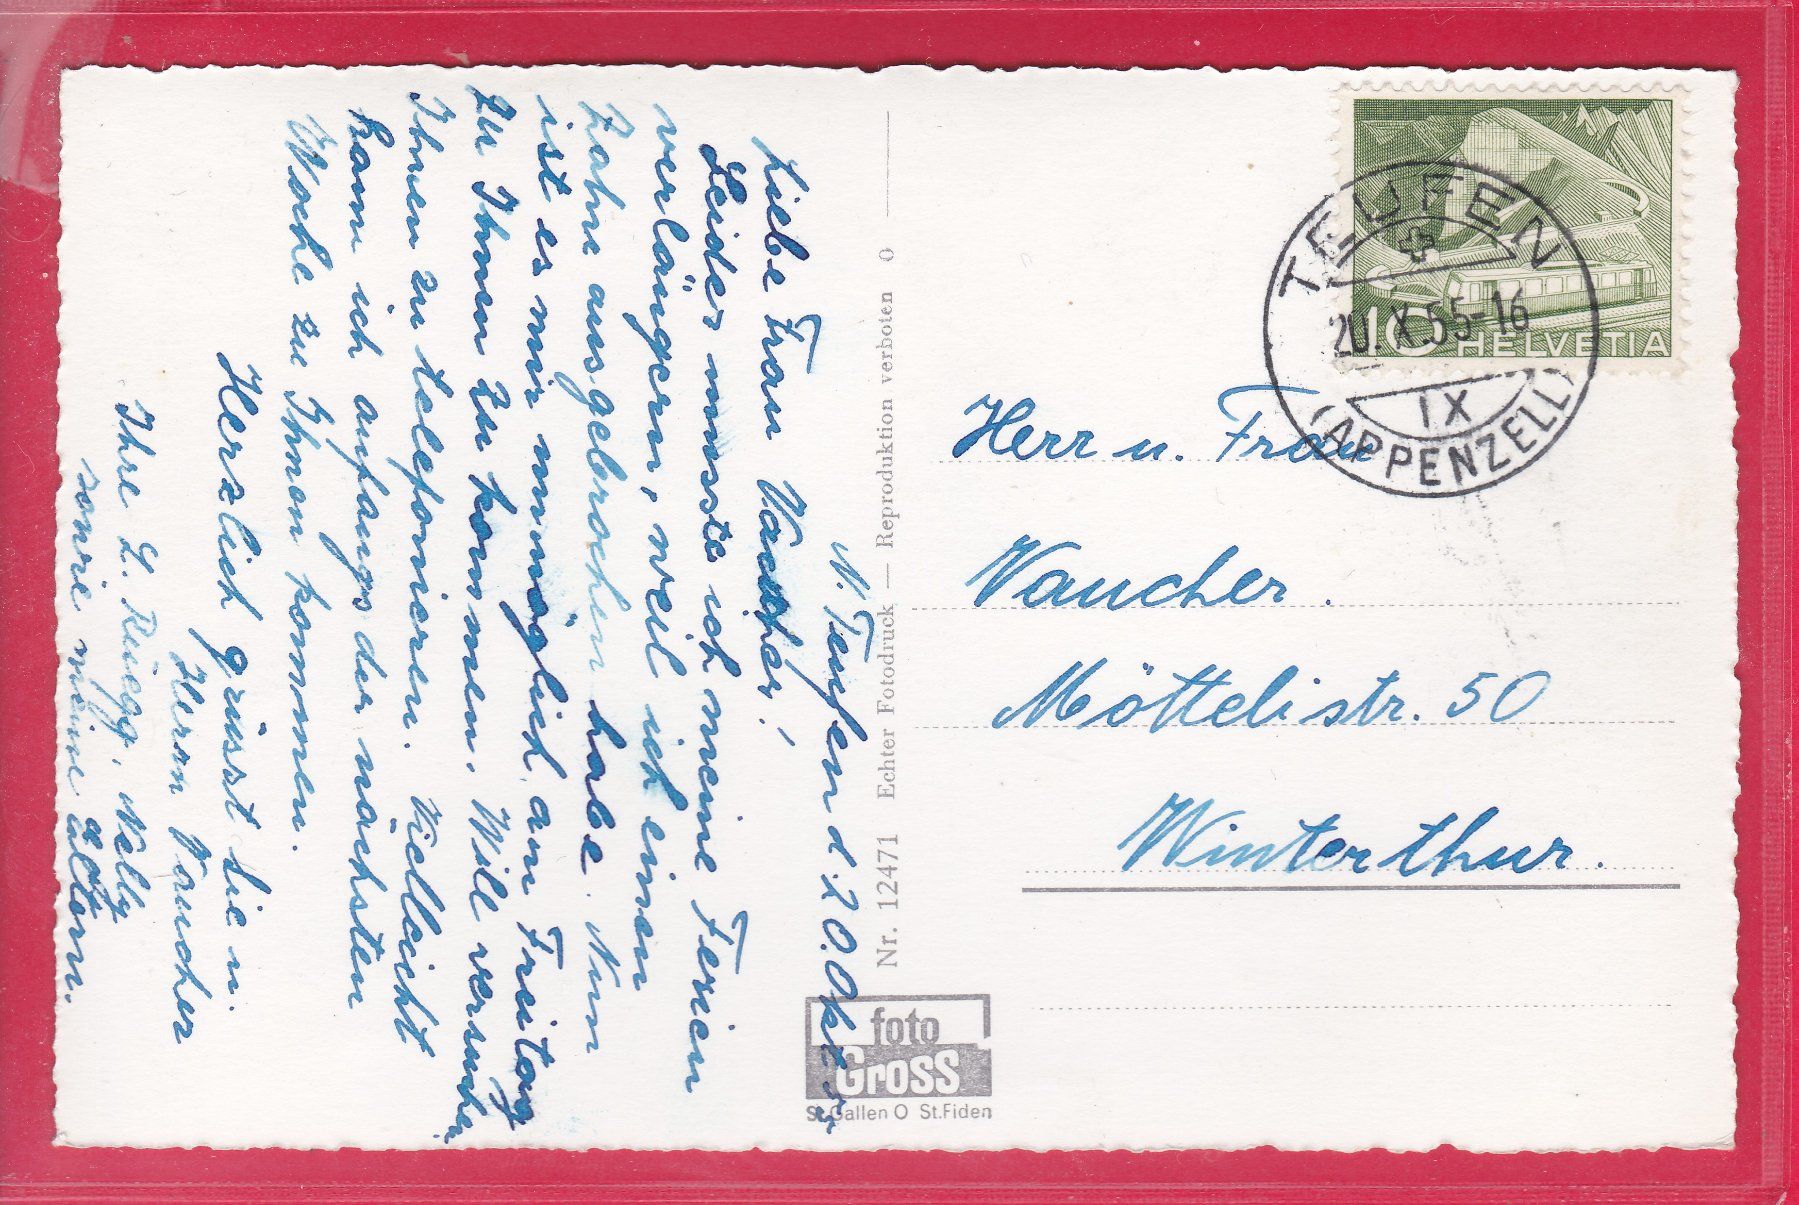 N. Teufen d. 20. Okt. 55
Liebe Frau Vaucher!
Leider musste ich meine Ferien
verlängern, weil ich einen
Zahn ausgebrochen habe. Nun
ist es mir unmöglich, am Freitag
zu Ihnen zu kommen. Will versuchen
Ihnen zu telefonieren. Vielleicht
kann ich anfangs der nächsten
Woche zu Ihnen kommen.
Herzlich grüsst Sie u.
Herrn Vaucher
Ihre L. Rüegg, Nelly
sowie meine Eltern.
Nr. 12471 Echter Fotodruck — Reproduktion verboten O
foto
Gross
St.Gallen O St.Fiden
TEUFEN
20.X.55-16
IX
(APPENZELL)
10 HELVETIA
Herr u. Frau
Vaucher.
Möttelistr. 50
Winterthur.